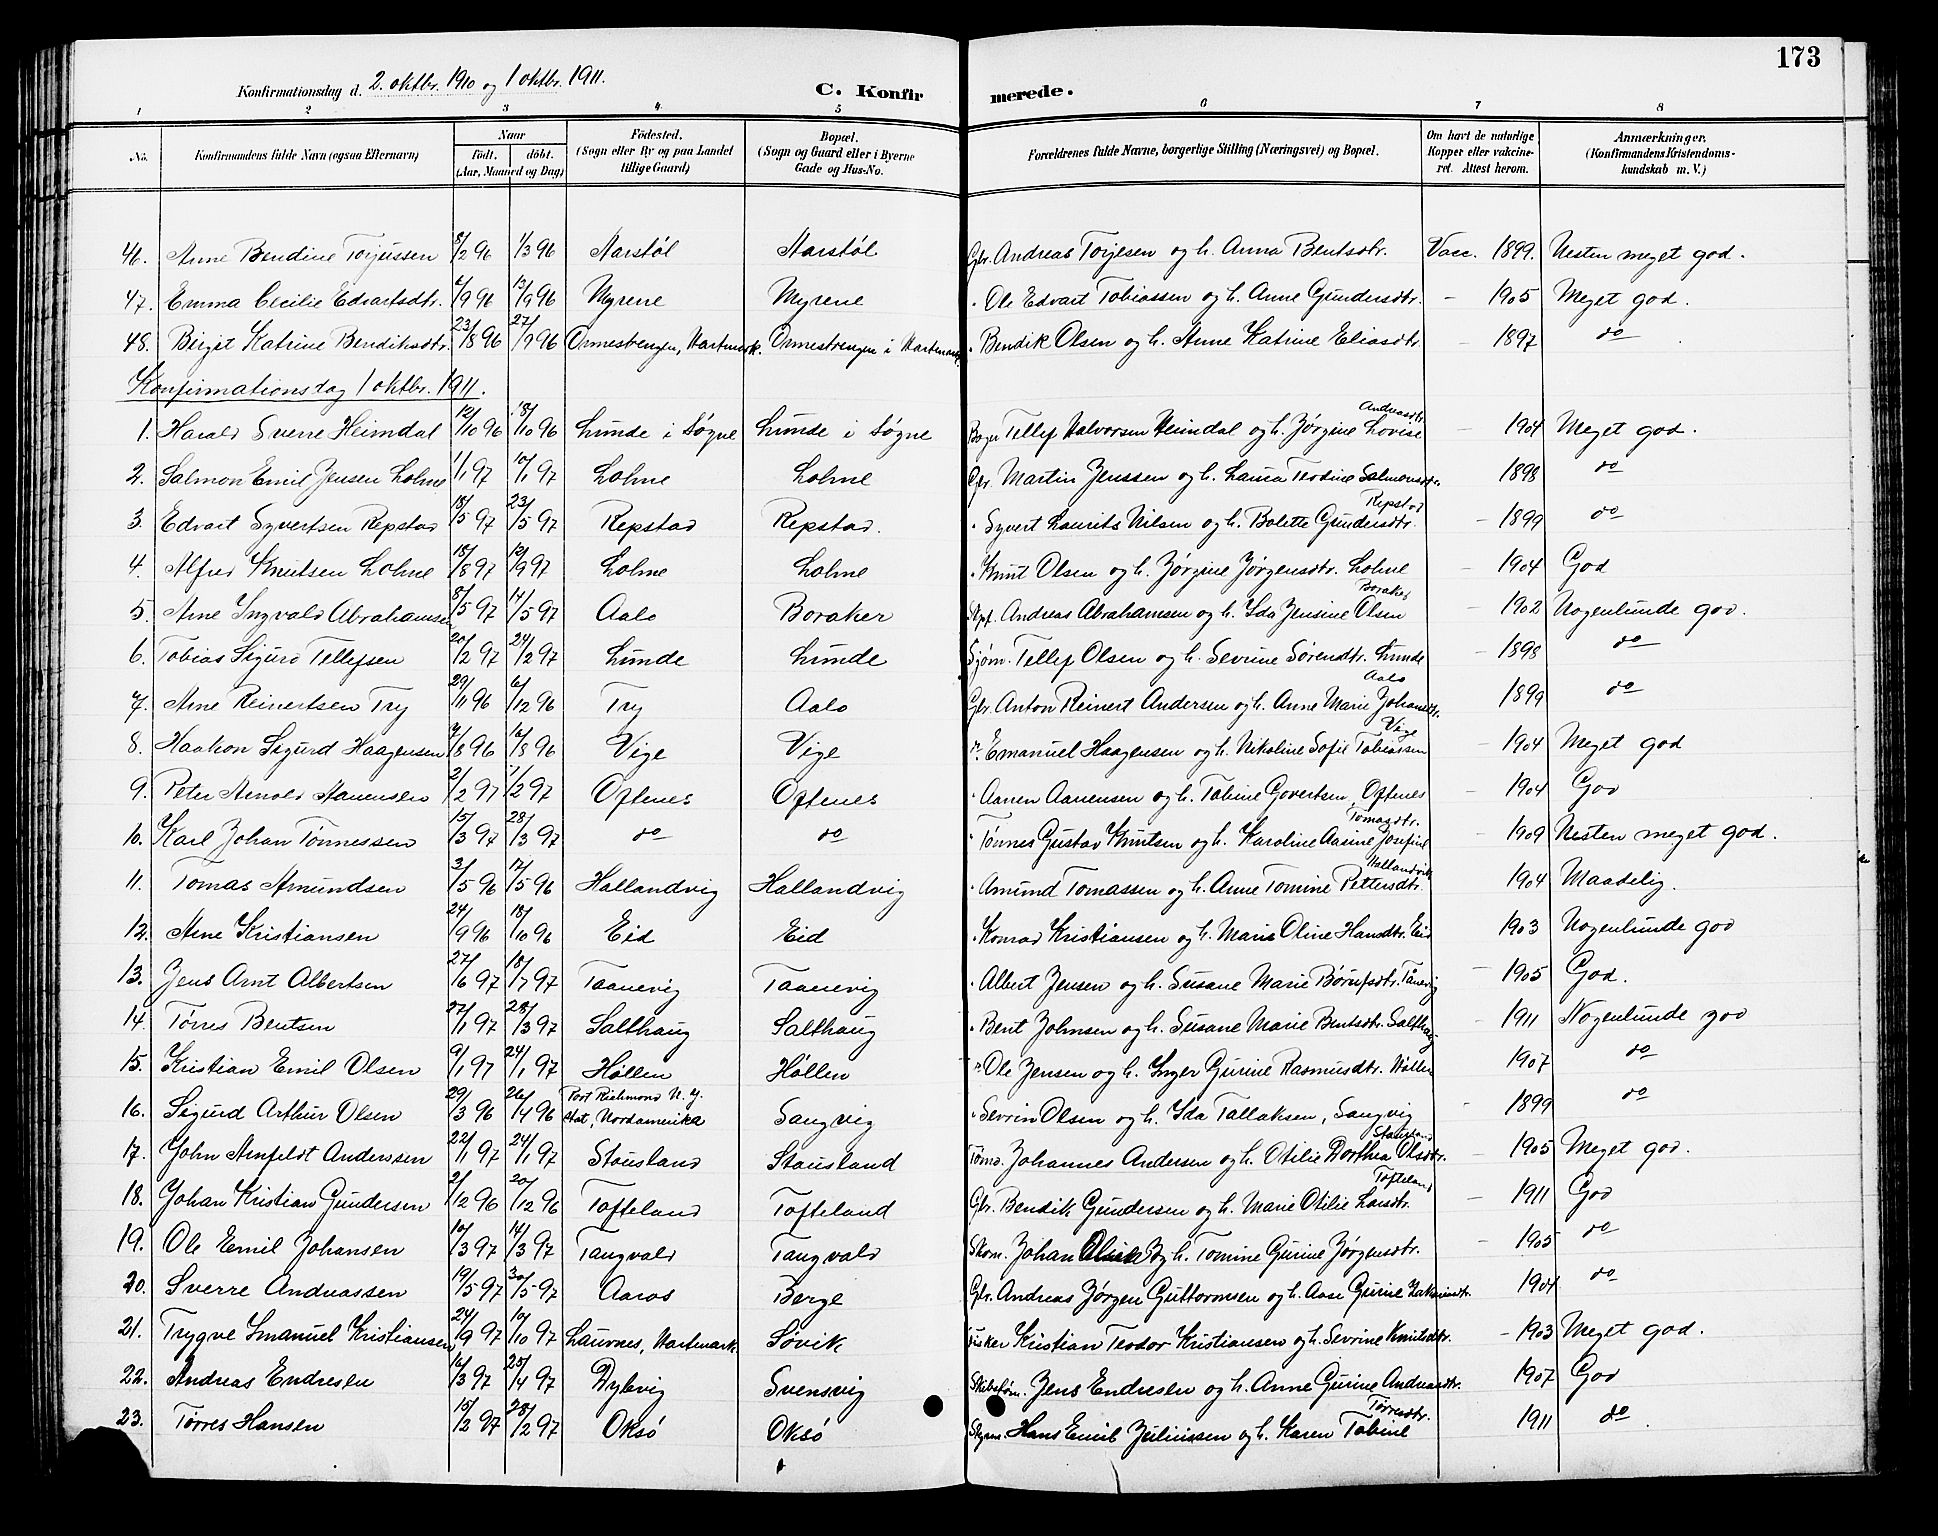 173
Konfirmationsdag d. 2. oktbr. 1910 og 1 oktbr. 1911.
C. Konfirmerede.
1 2 3 4 5 6 7 8
No. Konfirmandens fulde Navn (ogsaa Efternavn) Naar født. døbt. (Aar, Maaned og Dag) Fødested. (Sogn eller By og paa Landet tillige Gaard) Bopæl. (Sogn og Gaard eller i Byerne Gade og Hus-No. Forældrenes fulde Navne, borgerlige Stilling (Næringsvei) og Bopæl. Om havt de naturlige Kopper eller vakcineret. Attest herom. Anmærkninger. (Konfirmandens Kristendomskundskab m. V.)
46. Anne Bendine Torjussen 8/2 96 1/3 96 Aarstøl Aarstøl Gbr. Andreas Torjesen og h. Anna Bentsdtr. Vacc. 1899. Nesten meget god.
47. Emma Cecilie Edvartsdtr. 6/9 96 13/9 96 Myrene Myrene " Ole Edvart Tobiassen og h. Anne Gundersdtr. - 1905 Meget god.
48. Birgit Katrine Bendiksdtr. 23/8 96 27/9 96 Ormestrengen, Hartmark. Ormestrengen i Hartmark. " Bendik Olsen og h. Anne Katrine Eliasdtr. - 1897 do
Konfirmationsdag 1 oktbr. 1911.
1. Harald Sverre Heimdal 12/10 96 18/10 96 Lunde i Søgne Lunde i Søgne Bager Tellef Halvorsen Heimdal og h. Jørgine Lovise Andreasdtr. - 1904 Meget god.
2. Salmon Emil Jensen Lohne 1/1 97 10/1 97 Lohne Lohne Gbr. Martin Jenssen og h. Laura Teodine Salmonsdtr. - 1898 do
3. Edvart Syvertsen Repstad 18/5 97 23/5 97 Repstad Repstad. " Syvert Laurits Nilsen og h. Bolette Gundersdtr. Repstad - 1899 do
4. Alfred Knutsen Lohne 18/8 97 12/9 97 Lohne Lohne " Knut Olsen og h. Jørgine Jørgensdtr. Lohne - 1904 God
5. Arne Ingvald Abrahamsen 8/5 97 14/5 97 Aalo Boraker Andreas Abrahamsen og h. Ida Jensine Olsen Boraker - 1902 Nogenlunde god.
6. Tobias Sigurd Tellefsen 20/2 97 24/2 97 Lunde Lunde Sjøm. Tellef Olsen og h. Sevrine Sørendtr. Lunde - 1898 do
7. Arne Reinertsen Try 29/11 96 6/12 96 Try Aalo Gbr. Anton Reinert Andersen og h. Anne Marie Johansdtr. Aalo 1899 do
8. Haakon Sigurd Haagensen 7/8 96 16/8 96 Vige Vige " Emanuel Haagensen og h. Nikoline Sofie Tobiassen Vige - 1904 Meget god
9. Peter Arnold Aanensen 2/2 97 1/2 97 Oftenes Oftenes " Aanen Aanensen og h. Tobine Govertsen, Oftenes - 1904 God
10. Karl Johan Tønnessen 15/3 97 28/3 97 do do " Tønnes Gustav Knutsen og h. Karoline Aasine Josefine Tomasdtr. - 1909 Nesten meget god.
11. Tomas Amundsen 3/5 96 17/5 96 Hallandvig Hallandvig " Amund Tomassen og h. Anne Tomine Pettersdtr. Hallandvik - 1904 Maadelig.
12. Arne Kristiansen 24/9 96 18/10 96 Eid Eid " Konrad Kristiansen og h. Marie Oline Hansdtr. Eid - 1903 Nogenlunde god
13. Jens Arnt Albertsen 27/6 97 18/7 97 Taanevig Taanevig " Albert Jensen og h. Susane Marie Børufsdtr. Tånevig - 1905 God.
14. Tørres Bentsen 27/1 97 28/3 97 Salthaug Salthaug " Bent Johnsen og h. Susane Marie Bentsdtr. Salthaug - 1911 Nogenlunde god
15. Kristian Emil Olsen 9/1 97 24/1 97 Høllen Høllen " Ole Jensen og h. Inger Gurine Rasmusdtr. Høllen 1907 do
16. Sigurd Arthur Olsen 29/3 96 26/4 96 Port Richmond N. Y. Stat, Nordamerika Sangvig " Sevrin Olsen og h. Ida Tallaksen, Sangvig - 1899 do
17. John Arnfeldt Anderssen 22/1 97 24/1 97 Stousland Stousland Tømd. Johannes Andersen og h. Otilie Dorthea Olsdtr. Stousland - 1905 Meget god.
18. Johan Kristian Gundersen 2/12 96 20/12 96 Tofteland Tofteland Gbr. Bendik Gundersen og h. Marie Otilie Larsdtr. Tofteland - 1911 God
19. Ole Emil Johansen 10/3 97 14/3 97 Tangvald Tangvald Skom. Johan Olsen og h. Tomine Gurine Jørgensdtr. - 1905 do
20. Sverre Andreassen 19/5 97 30/5 97 Aaros Berge Gbr. Andreas Jørgen Guttormsen og h. Aase Gurine 1904 do
21. Trygve Emanuel Kristiansen 24/9 97 10/10 97 Laurnes, Hartmark. Søvik Fisker Kristian Teodor Kristiansen og h. Sevrine Knutsdtr. - 1903 Meget god.
22. Andreas Endresen 16/3 97 25/4 97 Dybvig Svensvig Skibstøm. Jens Endresen og h. Anne Gurine Andreasdtr. 1907 God
23. Tørres Hansen 15/2 97 28/2 97 Oksø Oksø Hans Emil Juliussen og h. Karen Tobine Tørresdtr. 1911 do